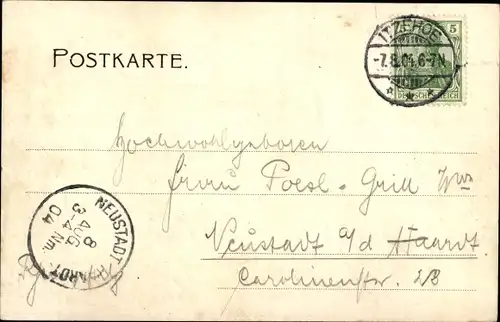 POSTKARTE.
5
DEUTSCHES REICH
ITZEHOE
-7.8.04.6-7N
Hochwohlgeboren
Frau Poesl-Grill Wwe
Neustadt a/d Haardt
Carolinenstr.
NEUSTADT HAARDT
8 AUG
3-4 Nm.
04